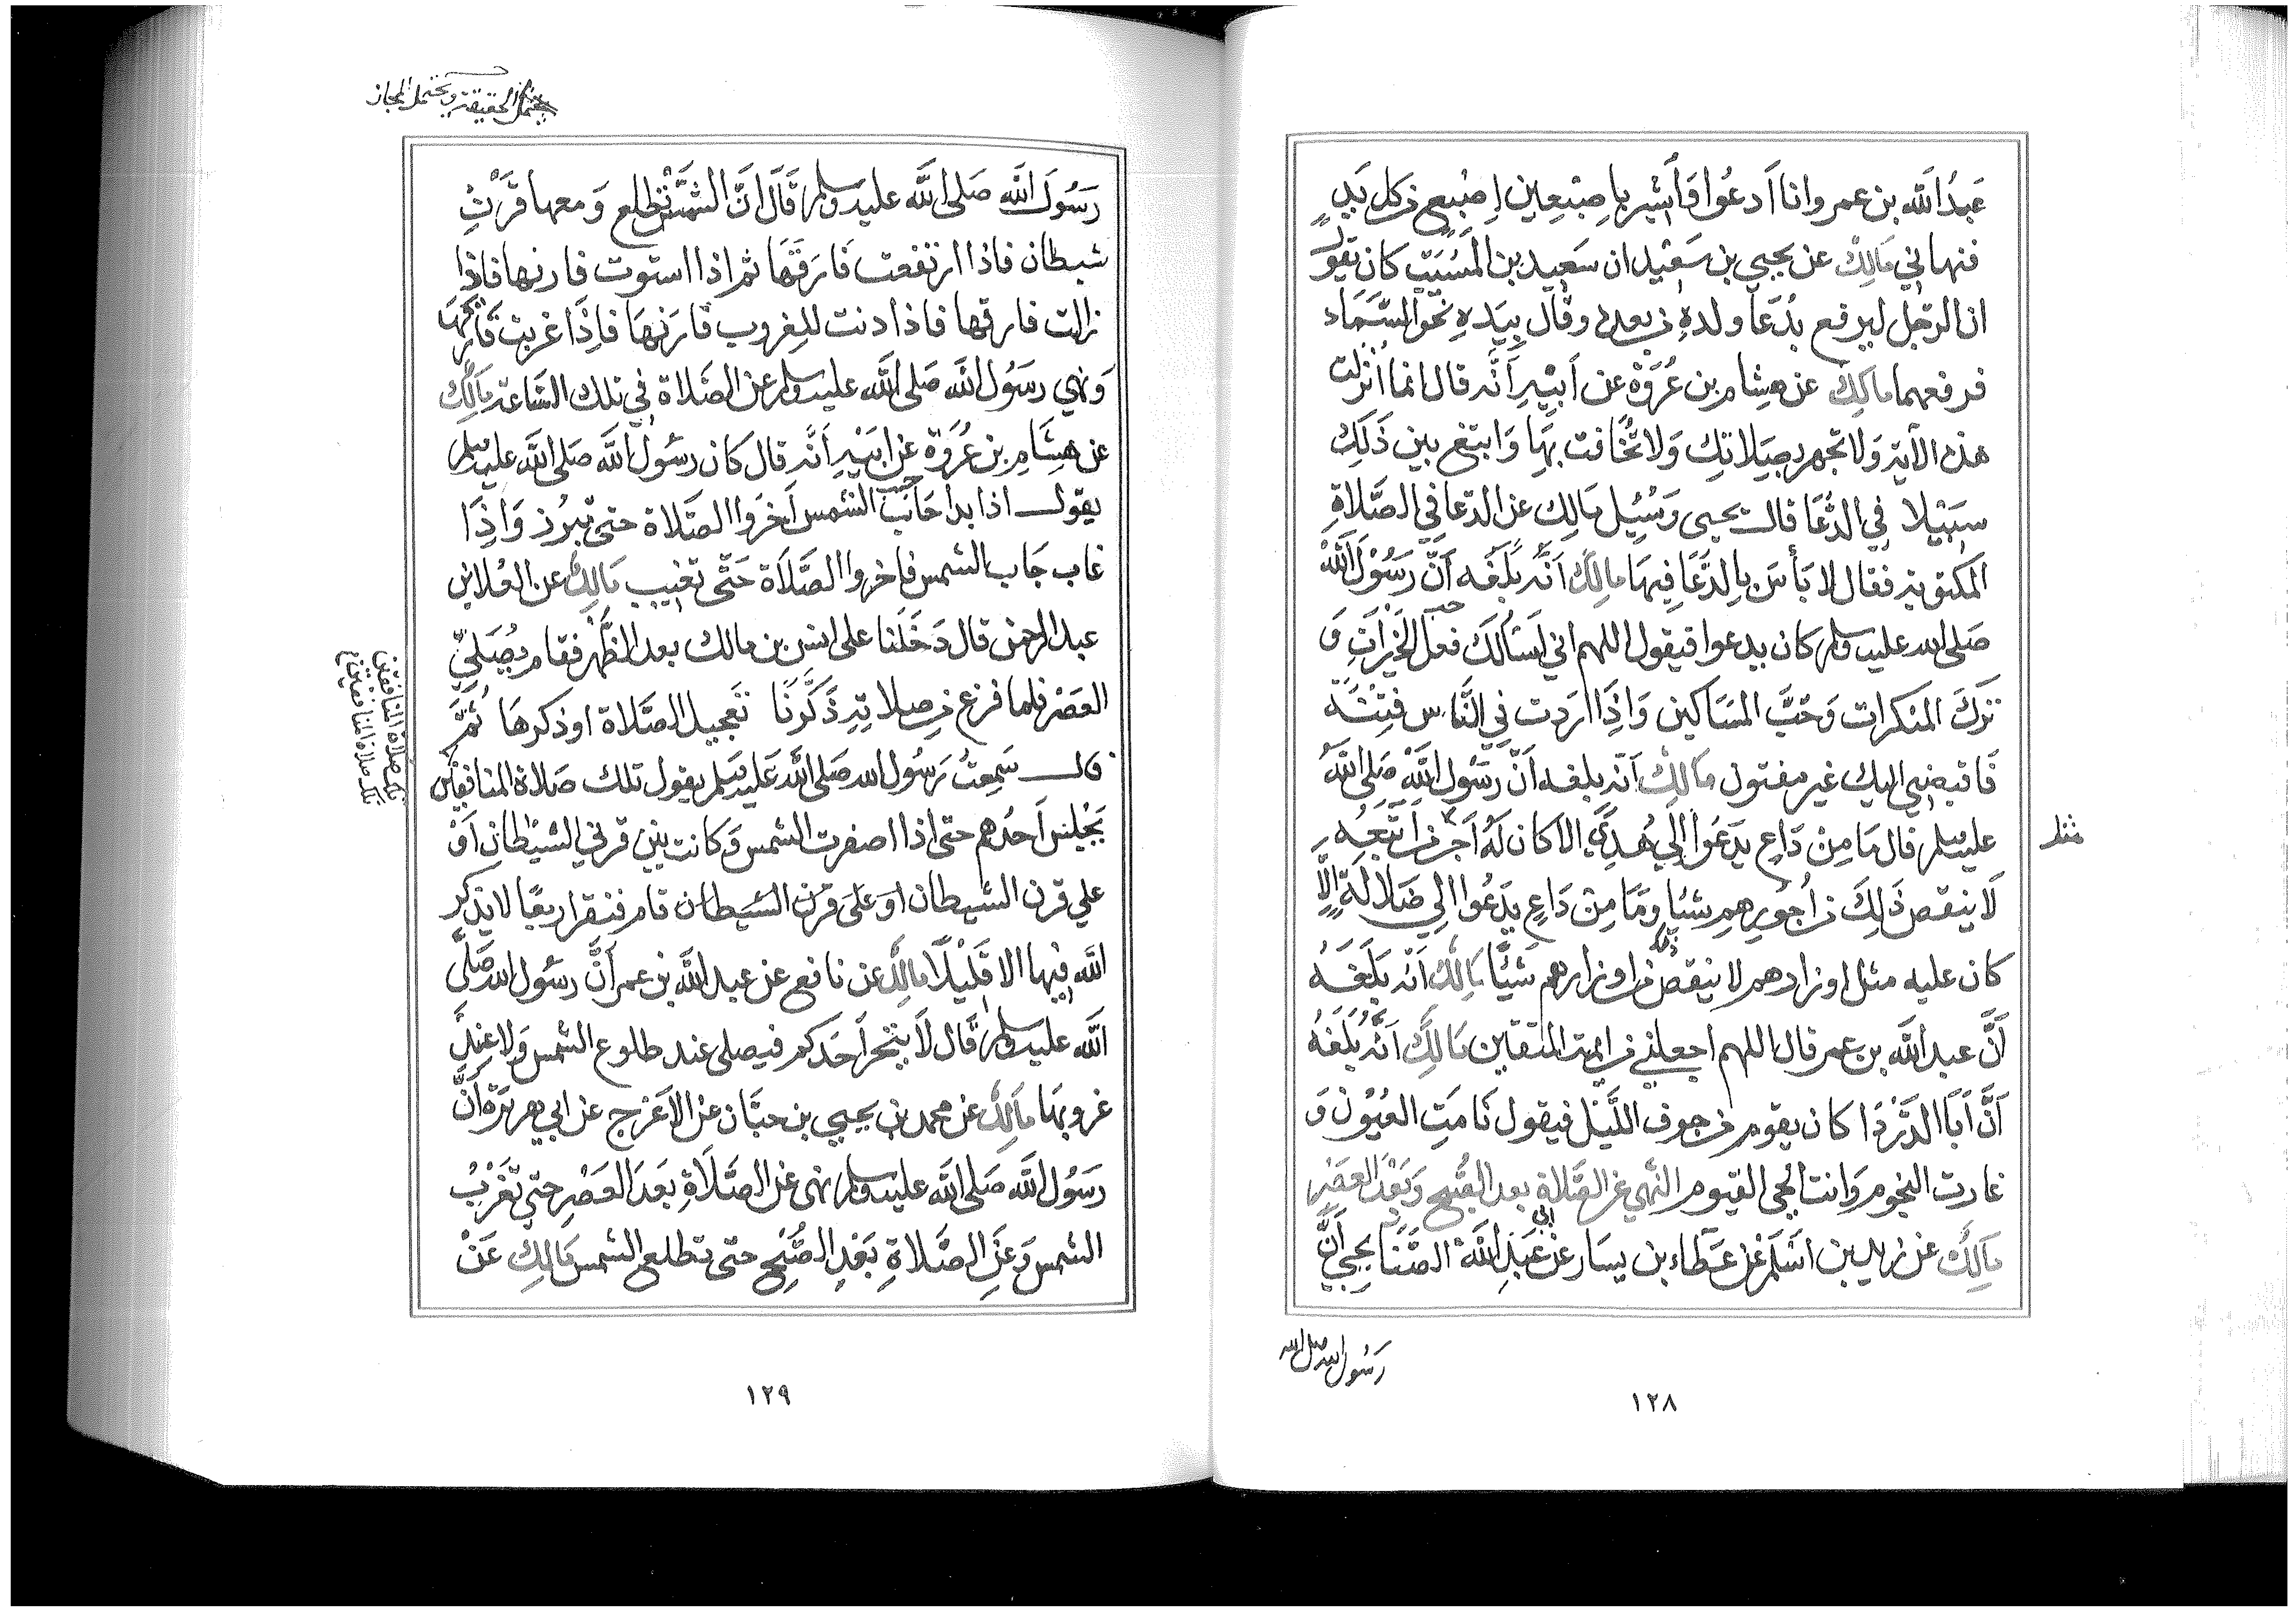 عَبدُ اللّه بن عمر وانا اَدعُوا وَأُشير باِصْبعين اِصْبع من كل يَدٍ
فنهاني مَالِك عن يحيي بن سَعيد ان سَعيد بن المُسَيِّب كان يقول
ان الرّجل ليرفع بدُعَاء ولدهِ من بعده وقال بِيَدهِ نحو السَّمَاء
فرفعهما مالِكٌ عن هِشام بن عُروَة عن اَبيْهِ اَنَّه قال انما اُنزلت
هذه الآية وَلا تجهر بصَلاتِك وَلا تُخَافت بهَا وَابتغ بين ذَلِكَ
سَبيْلا في الدُّعَا قالـ يحيى وَسُئِل مَالِك عن الدّعا في الصَّلاةِ
المكتوبة فقال لا بَأسَ بِالدَّعَا فِيهَا مالِك اَنَّه بَلَغَه اَنّ رَسُوْلَ اللّهْ
صَلى الله عليه وسلم كان يدعوا فيقول اللهم اني اَسْأَلك فعل الخيْرَاتِ وَ
تَركَ المنكرات وَحُبَّ المسَاكين وَاِذَا اردت في النَّاس فِتنَة
فَاقبضني اليك غير مفتون مَالِكْ اَنّه بلغه اَنّ رَسُول اللّه صَلى اللّه
عليه وسلم قال مَا مِنْ دَاعٍ يَدعُوا اِلي هُدىً الا كان لَهُ اَجر من اتَّبَعَهُ
مثل
لَا ينقص ذَلِكَ من اُجُورهمِ شيئا وَمَا مِنْ دَاعٍ يَدعُوا الي ضَلالةٍ اِلَّا
كان عليه مثل اوزارهم لا ينقص ذلك من اوزارهم شَيئًا مَالِكٌ اَنّه بَلَغَهُ
اَنّ عبد اللّه بن عمر قال اللهم اجعلني من ايمة المتقين مَالِكٌ اَنَّه بَلَغَهُ
اَنَّ اَبَا الدَّرْدَا كان يقوم من جوف اللَّيْل فيقول نَامَتِ العُيُون وَ
غارت النجوم وَانت الحي القيوم النَّهي عن الصَّلاة بعد الصُّبح وَبَعْدَ العصْرِ
مَالِكٌ عن زيد بن اَسْلَم عن عَطاء بن يسَار عن عَبْدِ اللّهِ الصّنَابحي اَنَّ
ابي
رَسُول الله صلى الله
١٢٨
يحتمل الحقيقة ويحتمل المجاز
رَسُولَ اللّه صَلى اللّه عليه وسلم قَالَ اِنَّ الشمْسَ تطلع وَمعها قَرْنُ
شيطان فاذا ارتفعت فَارَقَهَا ثم اذا استوت قارنها فاذا
زالت فارقها فاذا دنت للغروب قارَنَهَا فاِذَا غربت فَارَقَهَا
وَنهي رسَوُل اللّه صَلى اللّه عليه وسلم عن الصَّلاة في تلك السَّاعَة مَالِك
عن هِشَامِ بن عُروَة عن اَبيْهِ اَنَّه قال كان رسُول اللّه صَلى اللّه عليه وسلم
يقولـ اذا بدا حَاجب الشمس اَخروا الصَّلاة حتى تبرُز وَاِذَا
غاب حَاجب الشمس فاخروا الصَّلاَة حَتّى تغيب مَالِكٌ عن العُلا بن
عبد الرحمن قال دَخَلنا على انس بن مالك بعد الظُّهر فقام يُصَلِّي
العَصْر فلما فرغ من صلاتِهِ ذَكَّرنَا تعجيل الصَّلاة او ذكرهَا ثُمّ
قالـ سَمِعتُ رَسُول الله صَلى اللّه عَليه وسلم يقول تلك صَلاة المنافقين
تلك صلاة المنافقين
تلك صلاة المنافقين
يَجْلس اَحَدهم حتى اذا اصفرت الشمس وَكانت بَين قرني الشيْطان اَوْ
علي قرن الشيطان اوَ علىَ قَرن الشيطان قام فنقر اربعًا لا يذكر
اللّه فيها الا قَليْلًا مَالِكٌ عن نافع عن عبد اللّه بن عمر اَنَّ رسُول الله صَلَّى
اللّه عليه وسلم قَال لاَ يتحر اَحَدكم فيصلى عند طلوع الشمس وَلا عِندَ
غروبهَا مَالِكٌ عن محمد بن يحيي بن حبَّان عن الاَعرَج عن ابي هريرَة اَنَّ
رَسُول اللّه صَلى اللّه عليه وسلم نهى عن الصَّلَاةِ بَعدَ العَصْر حتي تغرُبْ
الشمس وَعَنِ الصَّلاةِ بَعْدِ الصُّبْح حتى تطلع الشمس مَالِك عَنْ
١٢٩